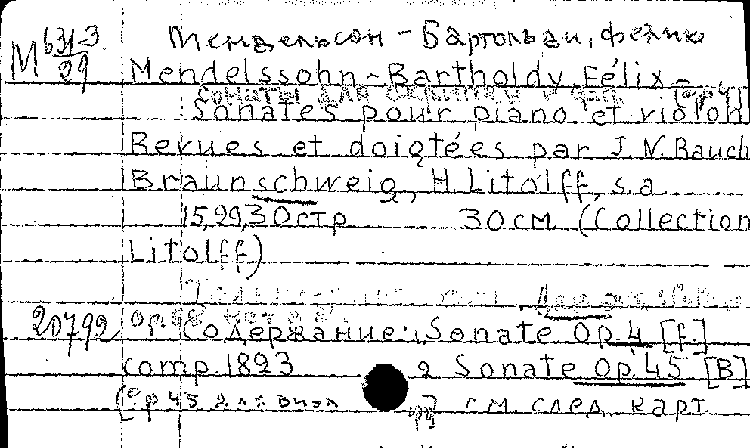 М 63-3 Мендельсон - Бартольди, Феликс
29 Mendelssohn-Bartholdy Félix -
Сонаты для скрипки и ф-п
Sonates pour piano et violon
Revues et doigtées par J.N.Rauch
Braunschweig, H.Litolff, s.a.
15,29,30стр 30см. (Collection
Litolff)
20792 Содержание: Sonate Op.4 [f.]
comp.1823 2 Sonate Op.45 [B]
см. след карт